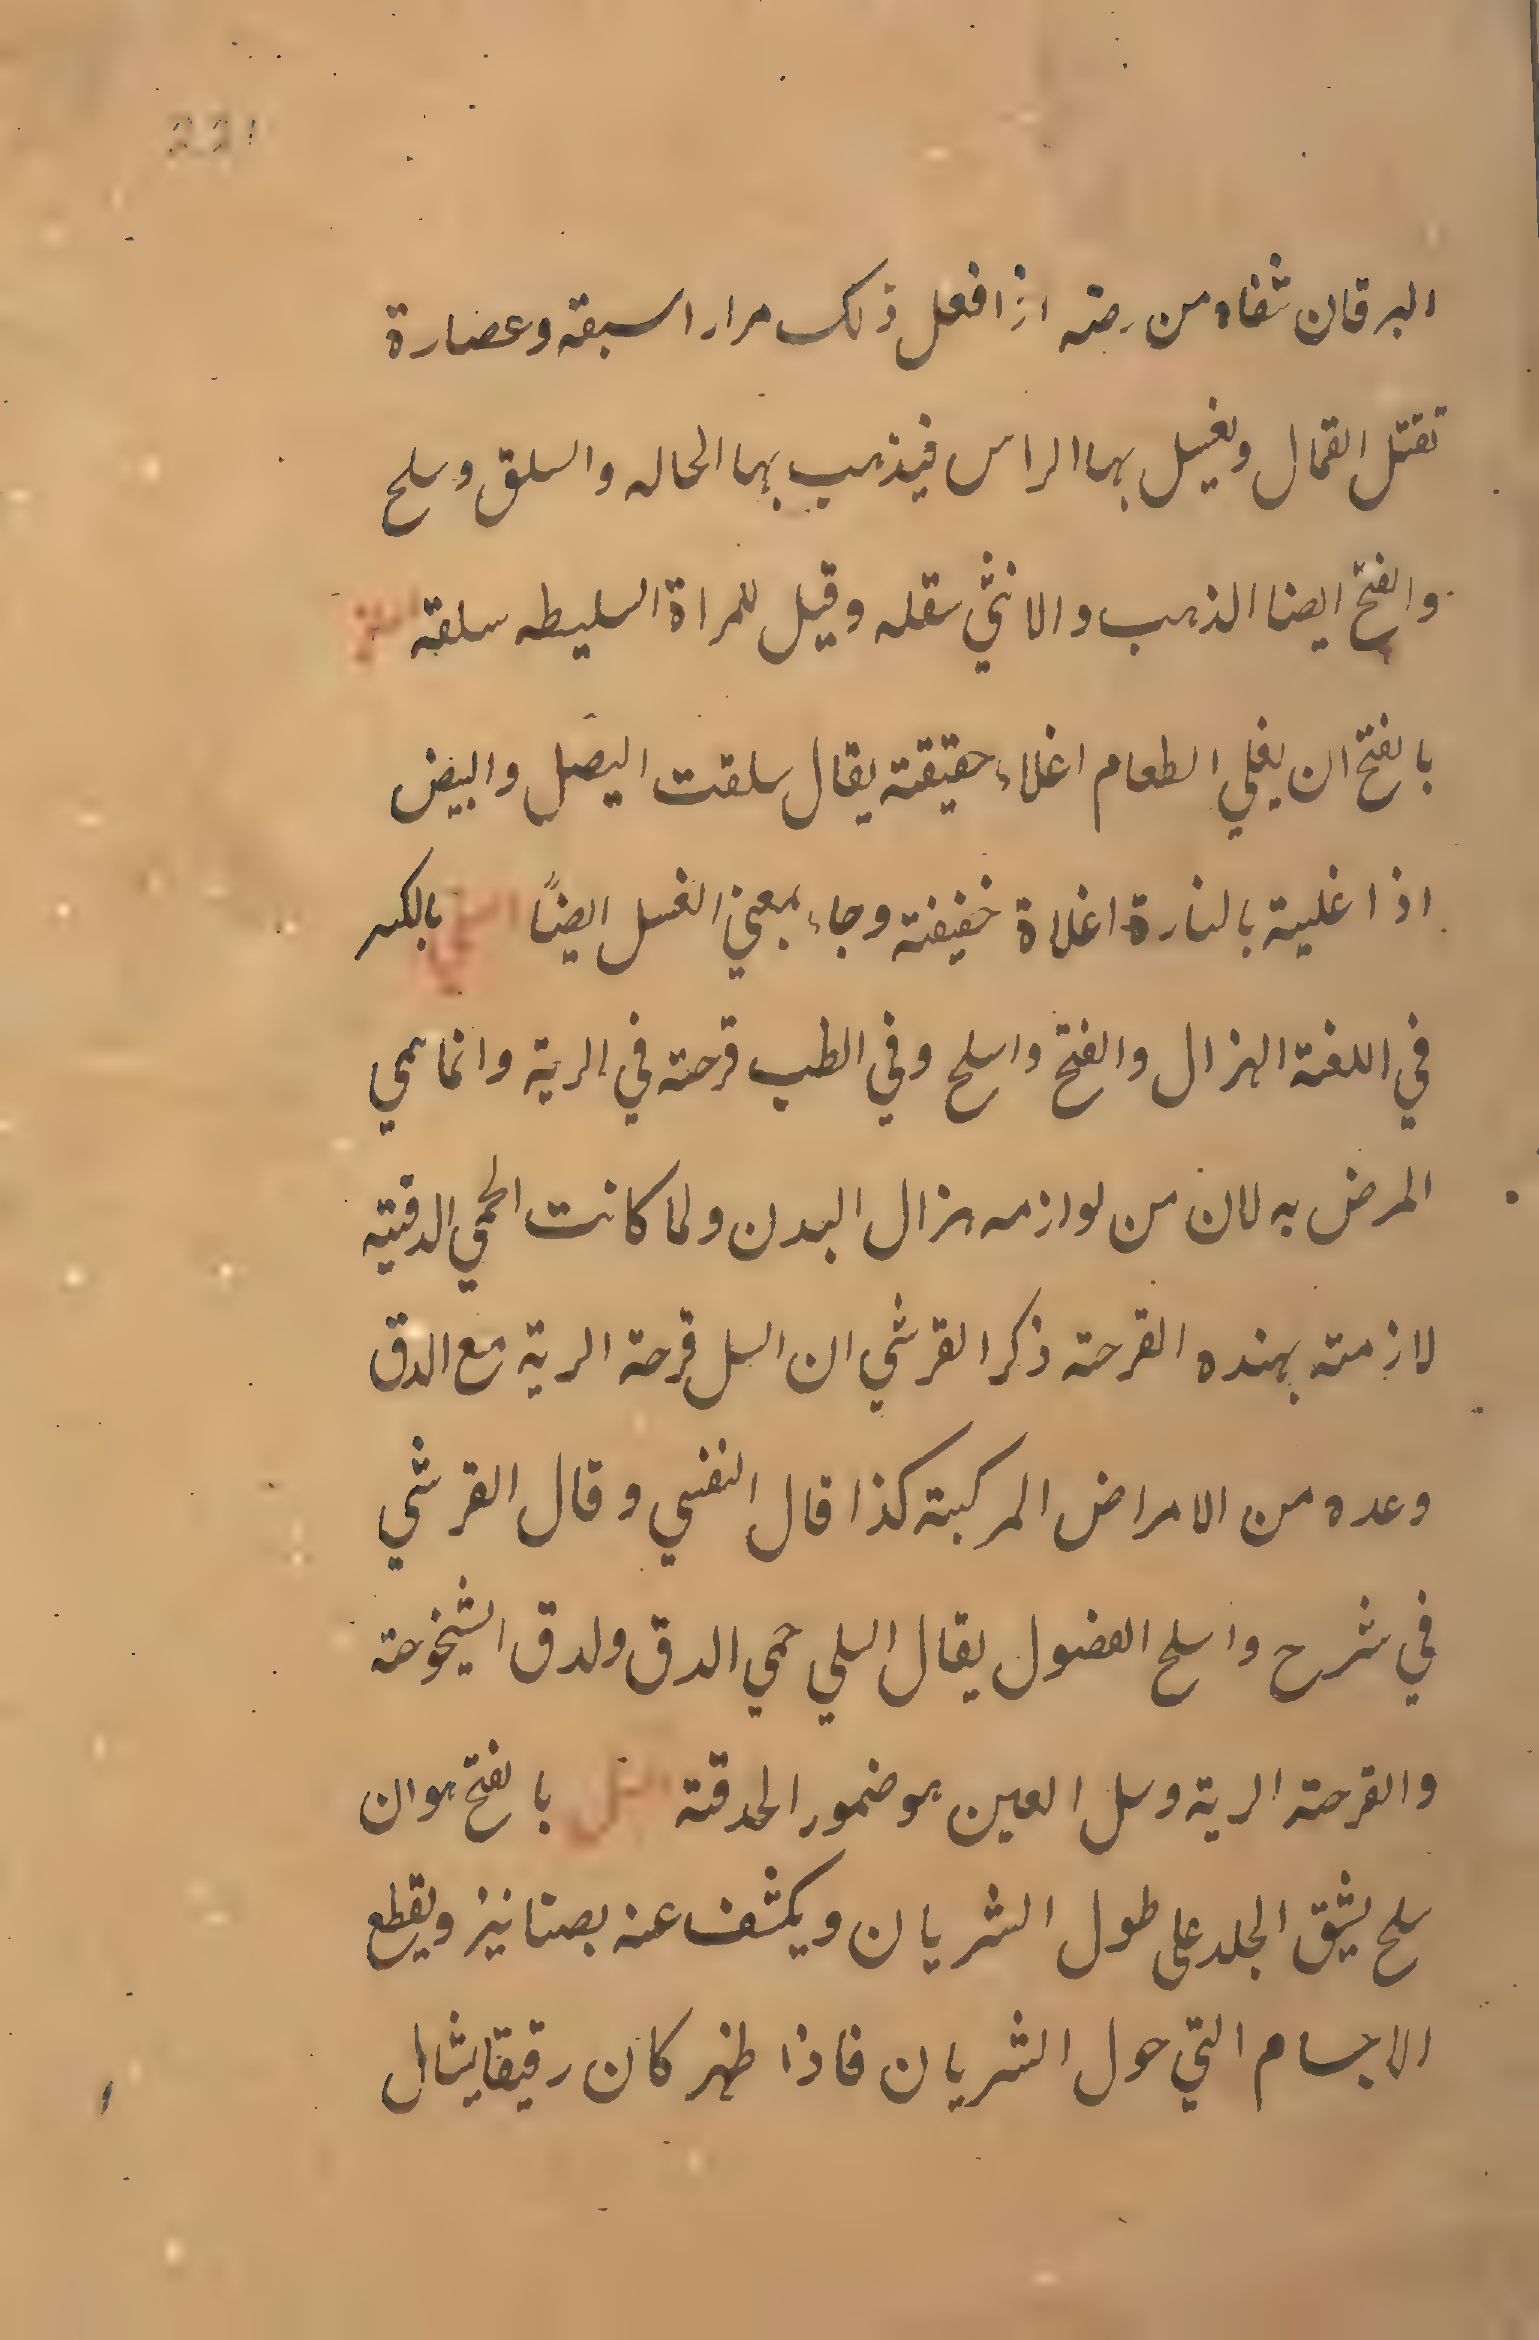 اليرقان شفاه من رمته اذا فعل ذلك مرارا سبقه وعصارة
تقتل القمال ويغسل بها الراس فيذهب بها الحاله والسلق وسلح
والفتح ايضا الذهب والانثي سقله وقيل للمراة السليطه سلقه
بالفتح ان يغلي الطعام اغلاء حقيقته يقال سلقت البصل والبيض
اذا غلية بالنارة اغلاة خفيفته وجاء بمعني الغسل ايضاً السل بالكسر
في اللغته الهزال والفتح واسلح وفي الطب قرحته في الرية وانما سمي
المرض به لان من لوازمه هزال البدن ولما كانت الحمي الدقيته
لازمته بهذه القرحته ذكر القرشي ان السل قرحة الرية مع الدق
وعده من الامراض المركبته كذا قال النفسي وقال القرشي
في شرح واسلح الفضول يقال السلي حمي الدق ولدق الشيخوخته
والقرحته الرية وسل العين هو ضمور الحدقته السل بالفتح هو ان
سلح يشق الجلد على طول الشريان ويكشف عنه بصنانيز ويقطع
الاجسام التي حول الشريان فاذا ظهر كان رقيقا يشال